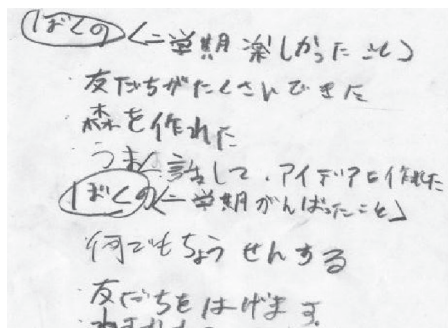 ぼくの〈二学期楽しかったこと〉
友だちがたくさんできた
森を作れた
うまく話して、アイデアを作れた
ぼくの〈二学期がんばったこと〉
何でもちょうせんする
友だちをはげます。